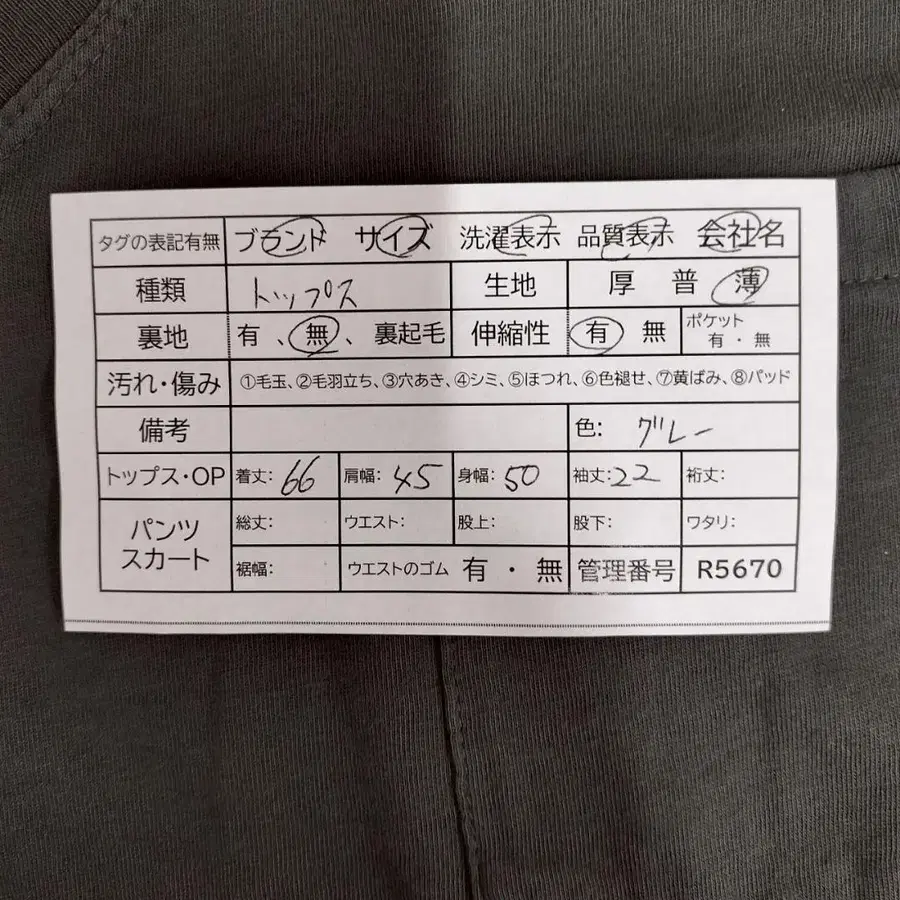 タグの表記有無 ブランド サイズ 洗濯表示 品質表示 会社名
種類 トップス 生地 厚 普 薄
裏地 有、無、裏起毛 伸縮性 有 無 ポケット 有・無
汚れ・傷み ①毛玉、②毛羽立ち、③穴あき、④シミ、⑤ほつれ、⑥色褪せ、⑦黄ばみ、⑧パッド
備考 色: グレー
トップス・OP 着丈: 66 肩幅: 45 身幅: 50 袖丈: 22 裄丈:
パンツ スカート 総丈: ウエスト: 股上: 股下: ワタリ:
裾幅: ウエストのゴム 有・無 管理番号 R5670